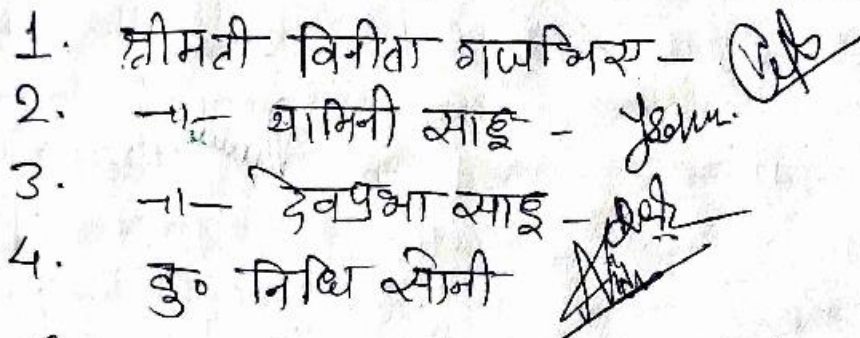 1. श्रीमती विनीता गजभिए -
2. -॥- यामिनी साहू -
3. -॥- देवप्रभा साहू -
4. कु० निधि सोनी